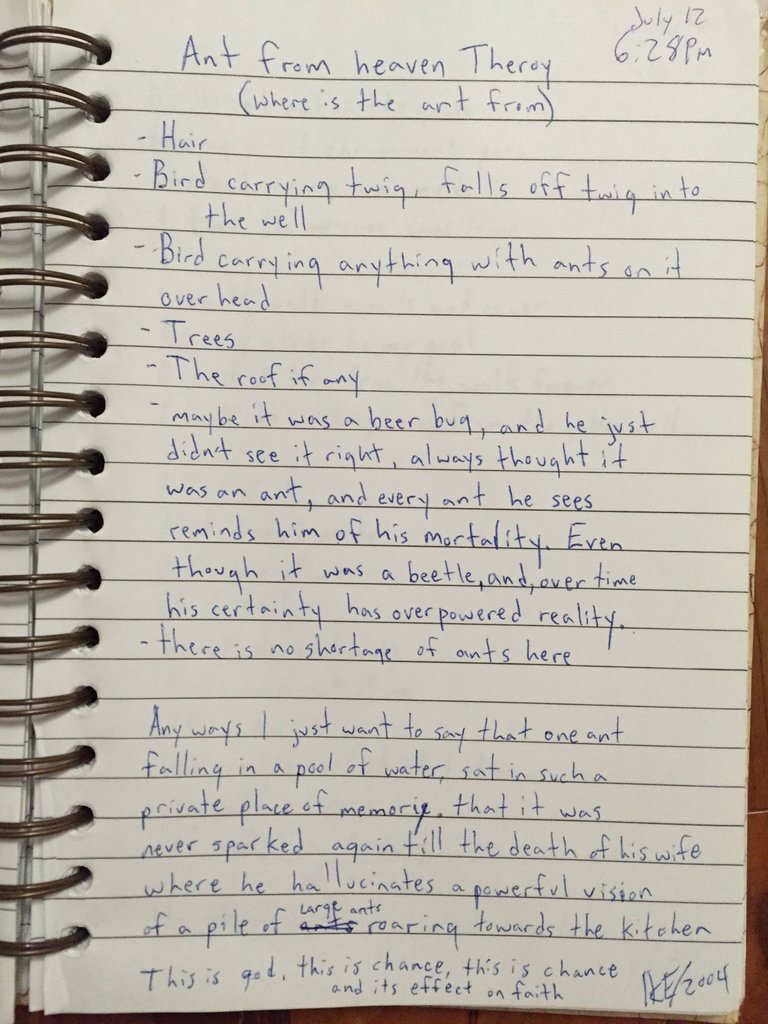 July 12
6:28pm
Ant from heaven Theroy
(where is the ant from)
- Hair
- Bird carrying twig, falls off twig into
the well
- Bird carrying anything with ants on it
over head
- Trees
- The roof if any
- maybe it was a beer bug, and he just
didnt see it right, always thought it
was an ant, and every ant he sees
reminds him of his mortality. Even
though it was a beetle, and, over time
his certainty has overpowered reality.
- there is no shortage of ants here
Any ways I just want to say that one ant
falling in a pool of water, sat in such a
private place of memorie, that it was
never sparked again till the death of his wife
where he hallucinates a powerful vision
of a pile of ants large ants roaring towards the kitchen
This is god, this is chance, this is chance
and its effect on faith
/2004